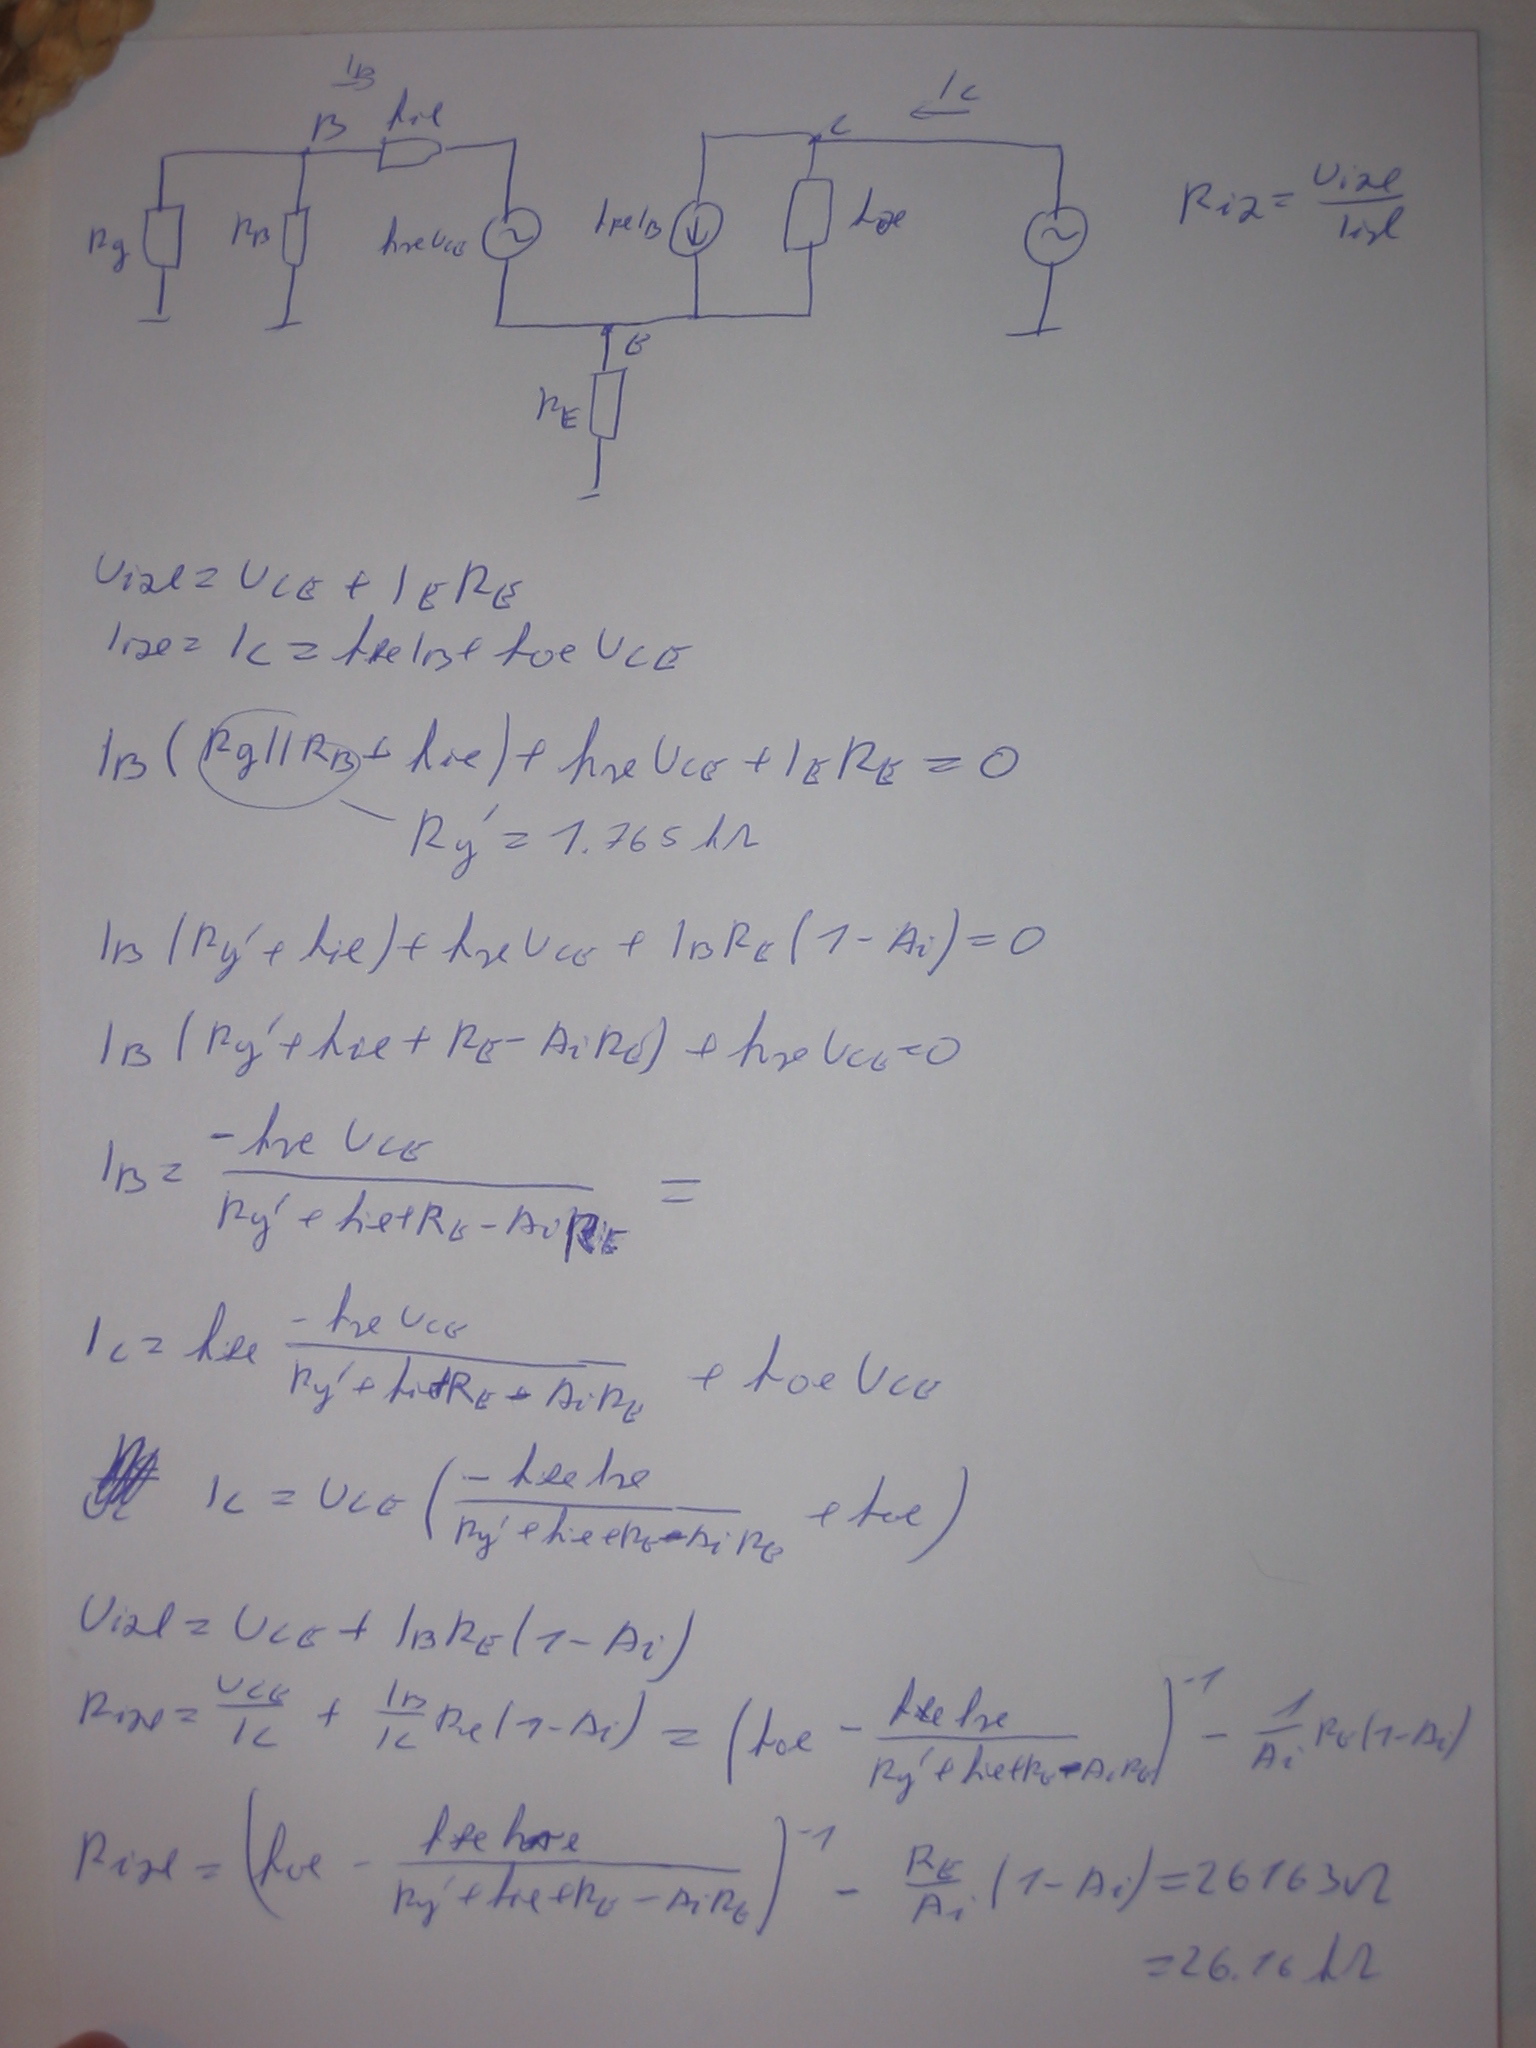 I_B
B hie
C I_C
Rg R_B hre U_CE hfe I_B hoe
Riz = Uizl / Iizl
E
R_E
Uizl = U_CE + I_E R_E
Iizl = I_C = hfe I_B + hoe U_CE
I_B (Rg||R_B + hie) + hre U_CE + I_E R_E = 0
Rg' = 1.765 kΩ
I_B (Rg' + hie) + hre U_CE + I_B R_E (1 - Ai) = 0
I_B (Rg' + hie + R_E - Ai R_E) + hre U_CE = 0
I_B = -hre U_CE / (Rg' + hie + R_E - Ai R_E) =
I_C = hfe -hre U_CE / (Rg' + hie + R_E - Ai R_E) + hoe U_CE
I_C = U_CE (-hfe hre / (Rg' + hie + R_E - Ai R_E) + hoe)
Uizl = U_CE + I_B R_E (1 - Ai)
Rizl = U_CE / I_C + I_B / I_C R_E (1 - Ai) = (hoe - hfe hre / (Rg' + hie + R_E - Ai R_E))^-1 - 1/Ai R_E (1 - Ai)
Rizl = (hoe - hfe hre / (Rg' + hie + R_E - Ai R_E))^-1 - R_E / Ai (1 - Ai) = 26163 Ω
= 26.16 kΩ